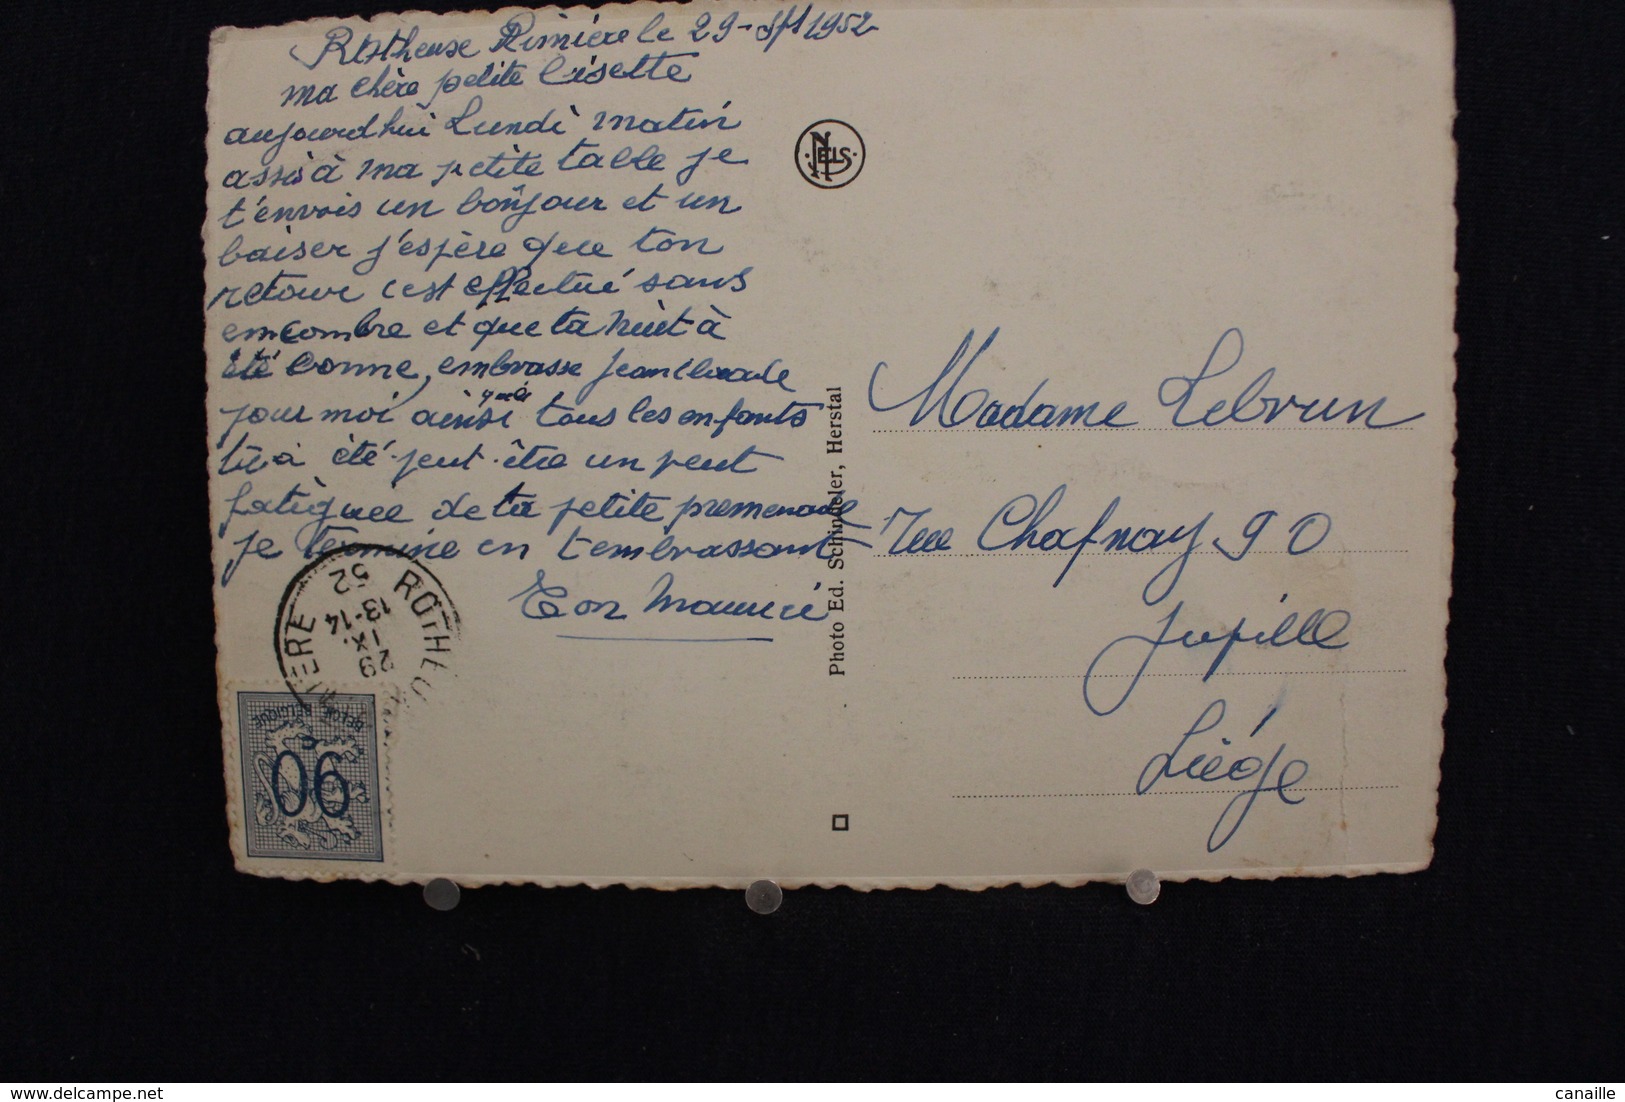 Rotheuse Rimière le 29 - Spt 1952
ma chère petite Lisette
aujourdhui Lundi matin
assis à ma petite table je
t'envois un bonjour et un
baiser j'espère que ton
retour c'est effectué sans
emcombre et que ta nuit à
été bonne, embrasse Jean Claude
pour moi, ainsi que tous les enfants
tu à été peut-être un peut
fatiguee de ta petite premenade
je termine en t'embrassant
Ton Maurice
NELS
Photo Ed. Schindeler, Herstal
Madame Lebrun
rue Chafnay 90
Jupille
Liége
ROTHEUX RIMIERE
29
IX.
13-14
52
BELGIE BELGIQUE
90
canaille